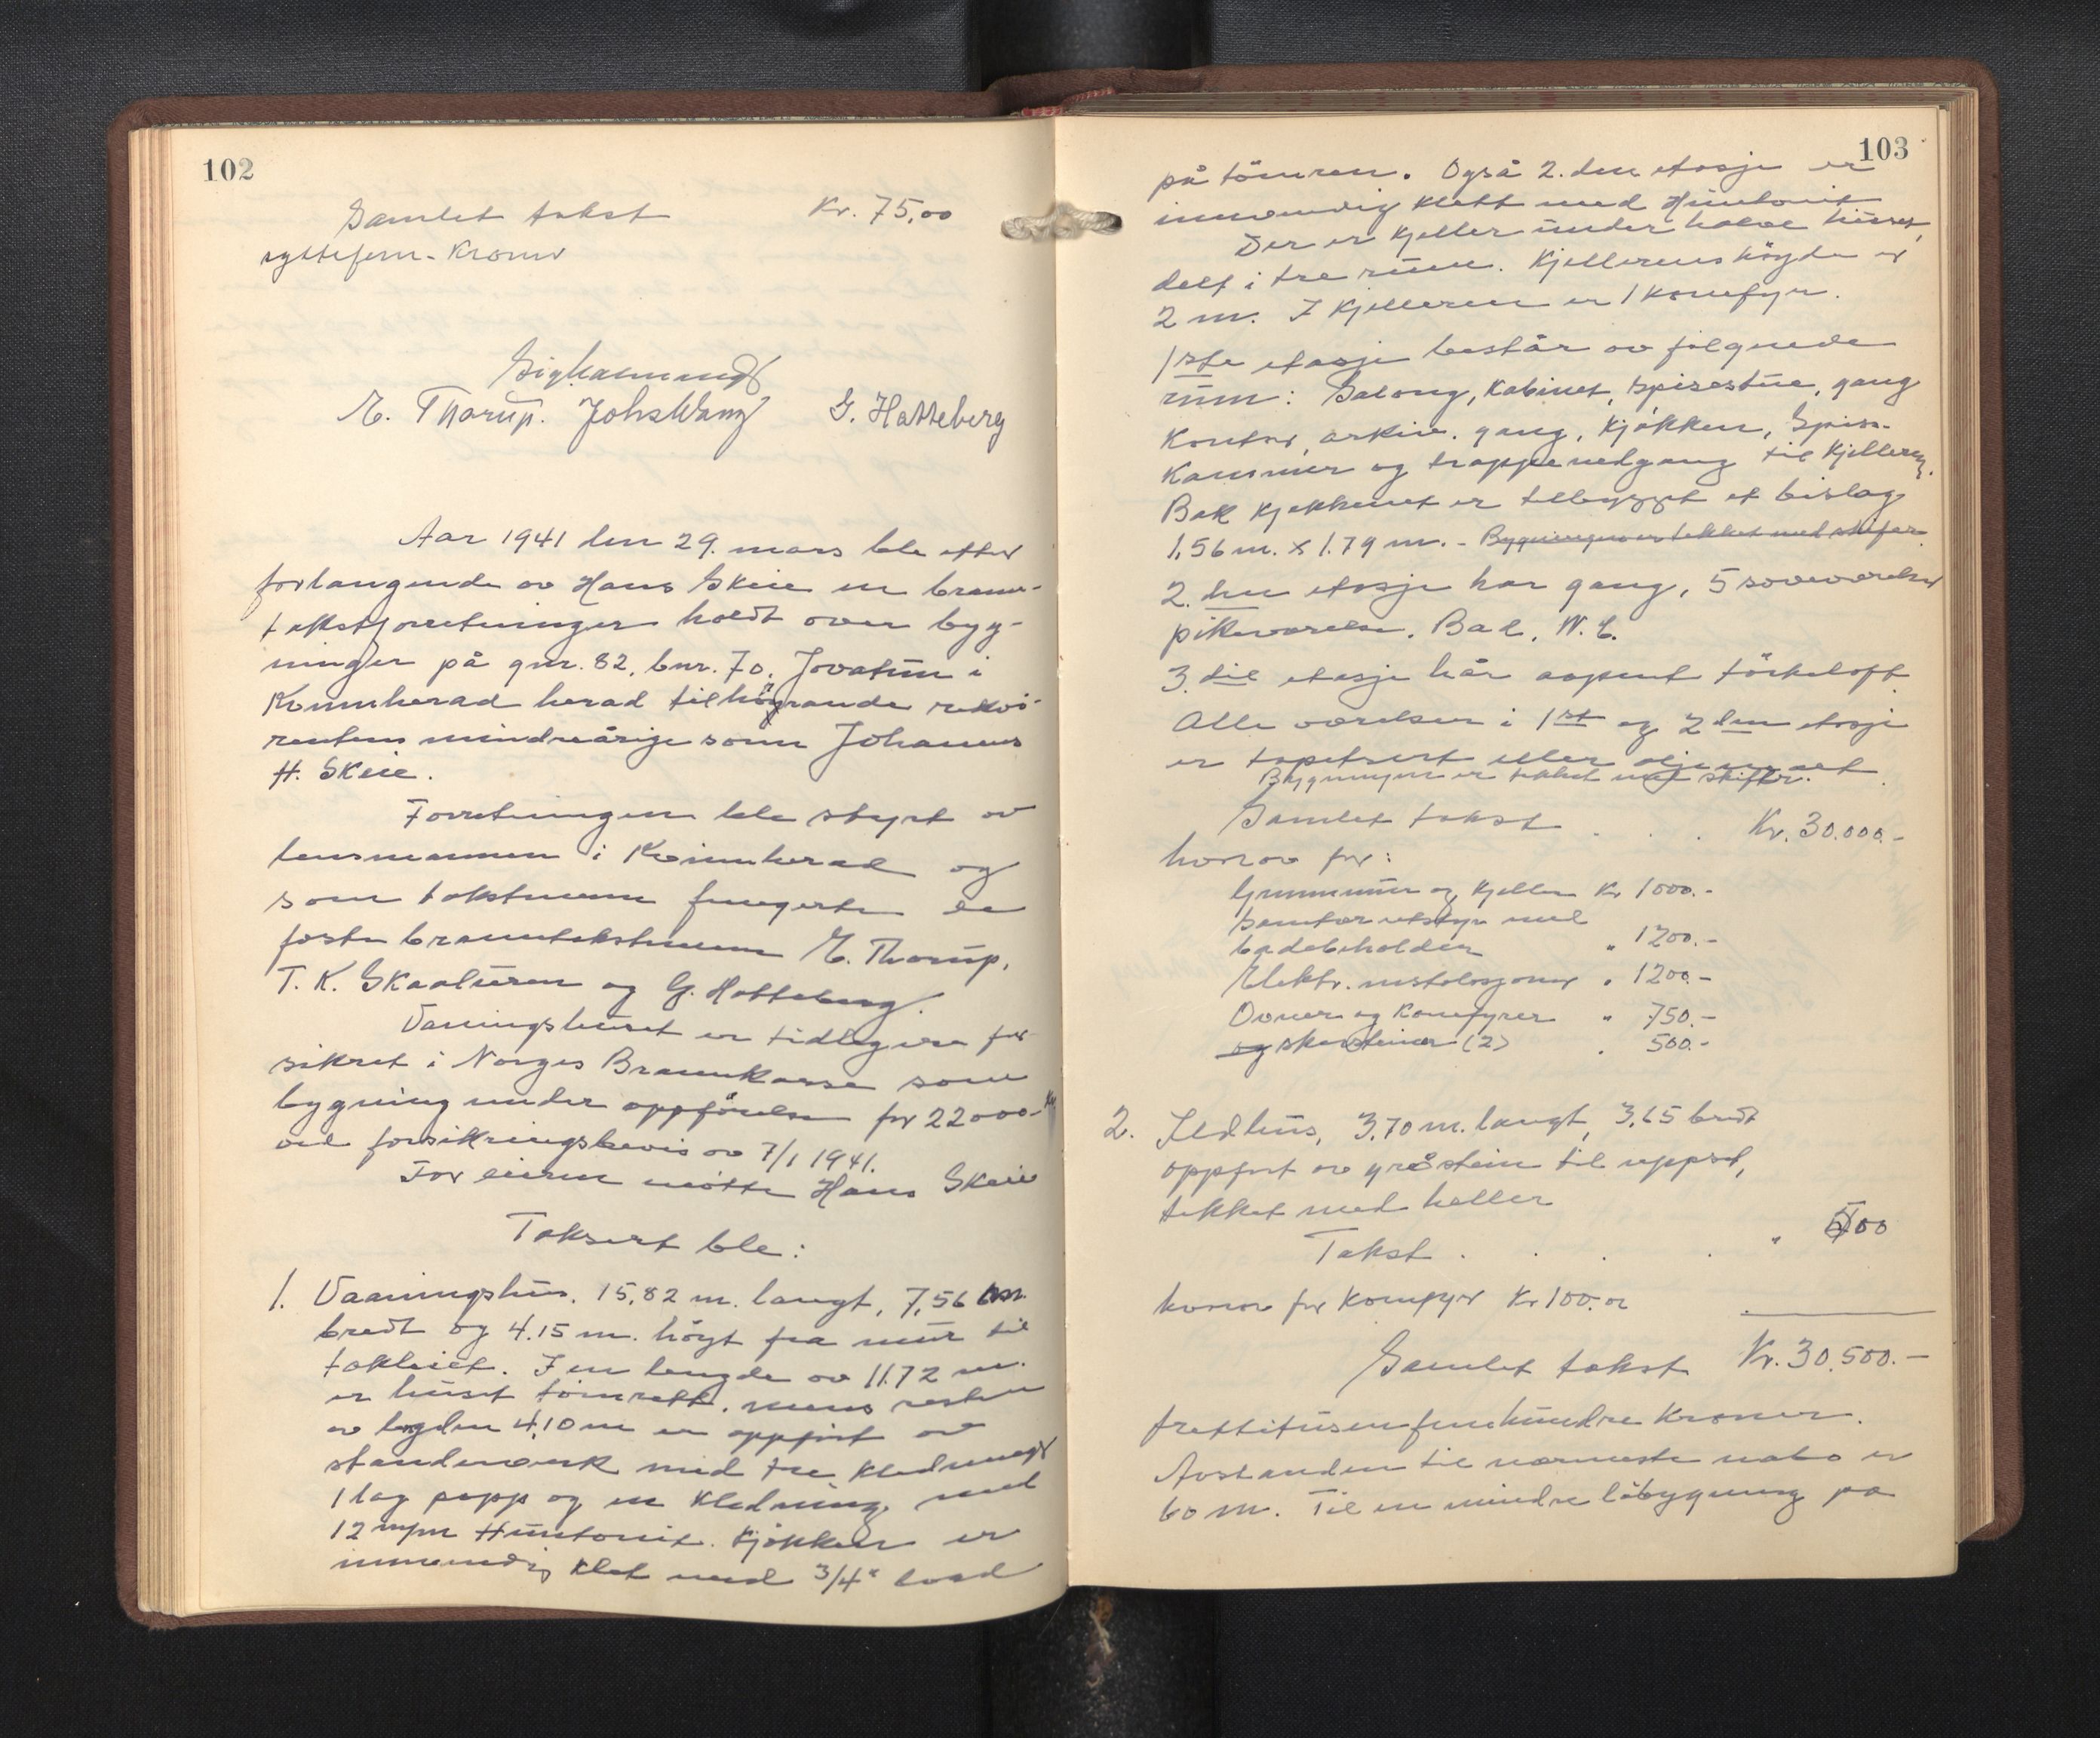 102
Samlet takst Kr. 75,00
syttifem - Kroner
E. Thorup. Johs Wang G. Hatteberg
Aar 1941 den 29. mars ble etter
forlangende av Hans Skeie en brann-
takstforretninger holdt over byg-
ninger på gnr. 82, bnr. 70, i
Kvinnherad herad tilhørande rekvi-
rentens mindreårige sønn Johannes
H. Skeie.
Forretningen ble styrt av
lensmannen i Kvinnherad og
som takstmenn fungerte de
faste branntakstmenn E. Thorup,
T. K. Skaaluren og G. Hatteberg.
Vaningshuset er tidligere for-
sikret i Norges Brannkasse som
bygning under oppførelse for 22000- Kr
ved forsikringsbevis av 7/1 1941.
For eieren møtte Hans Skeie
Taksert ble:
1. Vaaningshus. 15,82 m. langt, 7,56 m.
bredt og 4.15 m. høgt fra mur til
takleiet. I en lengde av 11.72 m.
er huset tømrett, mens resten
av lengden 4,10 m er oppført av
standerverk med tre kledninger
1 lag papp og en kledning med
12 m/m Huntonit. Kjøkken er
innvendig kled med 3/4" bord
103
på tømren. Også 2. den etasje er
innvendig klett med Huntonit
Der er kjeller under halve huset,
delt i tre rum. Kjellerens høyde er
2 m. I kjelleren er 1 komfyr.
1ste etasje består av følgnede
rum: Salong, Kabinet, spisestue, gang
Kontor, arkiv. gang, Kjøkken, Spis-
Kammer og trappenedgang til Kjelleren.
Bak kjøkkenet er tilbygget et bislag
1,56 m. x 1.79 m. - Bygningen er tekket med skifer.
2. den etasje har gang, 5 soveværelser
pikeværelse. Bad, W. C.
3. die etasje har aapent tørkeloft.
Alle værelser i 1st og 2 den etasje
er tapetsert eller oljemalt.
Bygningen er tekket med skiffer.
Samlet takst . . . Kr. 30.000.-
hvorav for:
Grunnmur og kjeller Kr 1000.-
Sanitær utstyr med
badebeholder " 1200.-
Elektr. instalasjoner " 1200.-
Ovner og Komfyrer " 750.-
og skorsteiner (2) " 500.-
2. Ildhus, 3,70 m. langt, 3,65 bredt
oppført av gråstein til uppset,
tekket med heller
Takst . . . . " 500
hvorav for Komfyr Kr 100.00
Samlet takst Kr. 30.500.-
trettitusenfemhundre Kroner.
Avstanden til nærmeste nabo er
60 m. Til en mindre løbygning på